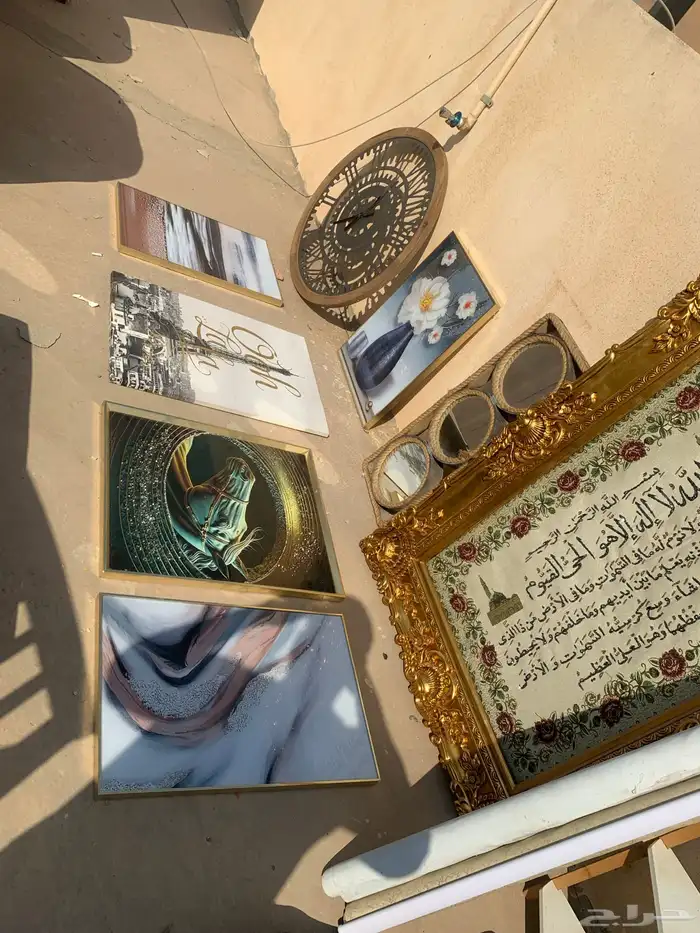 بسم الله الرحمن الرحيم
الله لا إله إلا هو الحي القيوم
ولا نوم له ما في السموات وما في الأرض من ذا الذي
يعلم ما بين أيديهم وما خلفهم ولا يحيطون
شاء وسع كرسيه السموات و الأرض
حفظهما وهو العلي العظيم
Ooh
La La
حراج